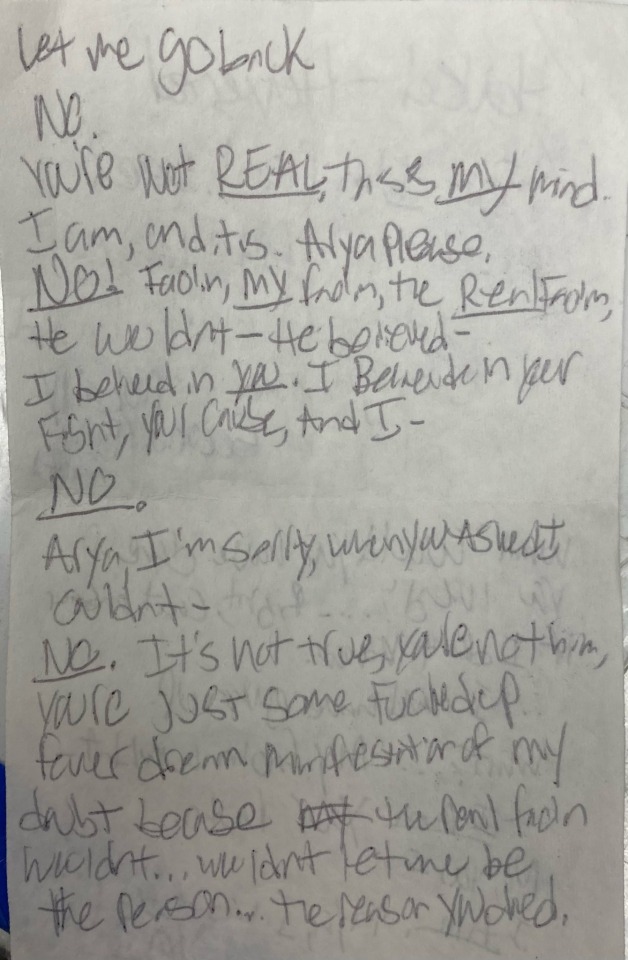 Let me go back
NO.
You're not REAL, this is my mind.
I am, and it is. Arya please.
NO! Faolin, my faolin, the Real Faolin,
He wouldn't - He believed -
I believed in you. I Believed in your
Fight, your Cause, And I -
NO.
Arya, I'm sorry, when you Asked I
couldn't -
NO. It's not true, you're not him,
you're just some Fucked up
fever dream manifestation of my
doubt because the real faolin
wouldn't... wouldn't let me be
the person... the reason you died.